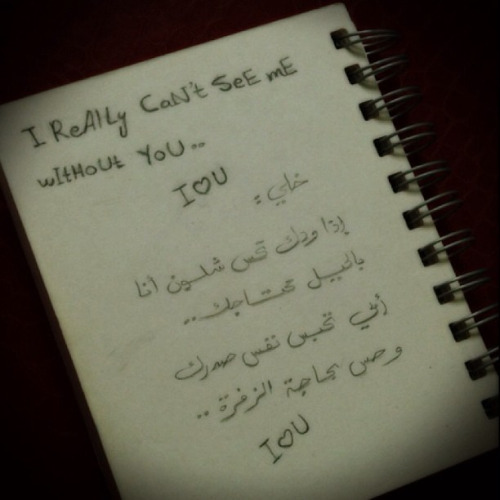 I ReAlLy CaN't SeE mE
wItHoUt YoU..
I♡U
خلي :
إذا ودك تحس شلون انا
بالحيل محتاجك..
أبي تحبس نفس صدرك
وحس بحاجة الزفرة ..
I♡U